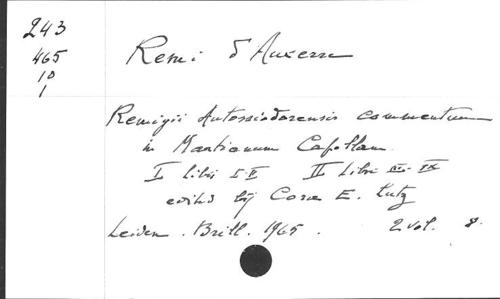 243
465
10
1
Remi d'Auxerre
Remigii Autossiodorensis commentum
in Martianum Capellam
I Libri I-II II Libri III-IX
edited by Cora E. Lutz
Leiden. Brill. 1965. 2 vol. 8.